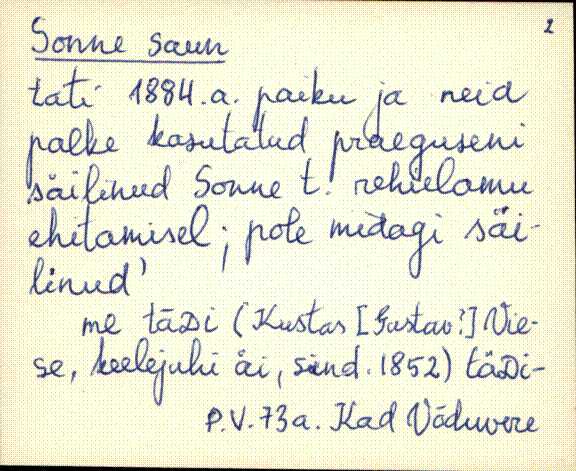 2
Sonne saun
tati 1884.a. paiku ja neid
palke kasutatud praeguseni
säilinud Sonne t. rehielamu
ehitamisel; pole midagi säi-
linud'
me täDi (Kustas [Gustav?] Vie-
se, keelejuhi äi, sünd. 1852) täDi-
P.V. 73 a. Kad Väduvere